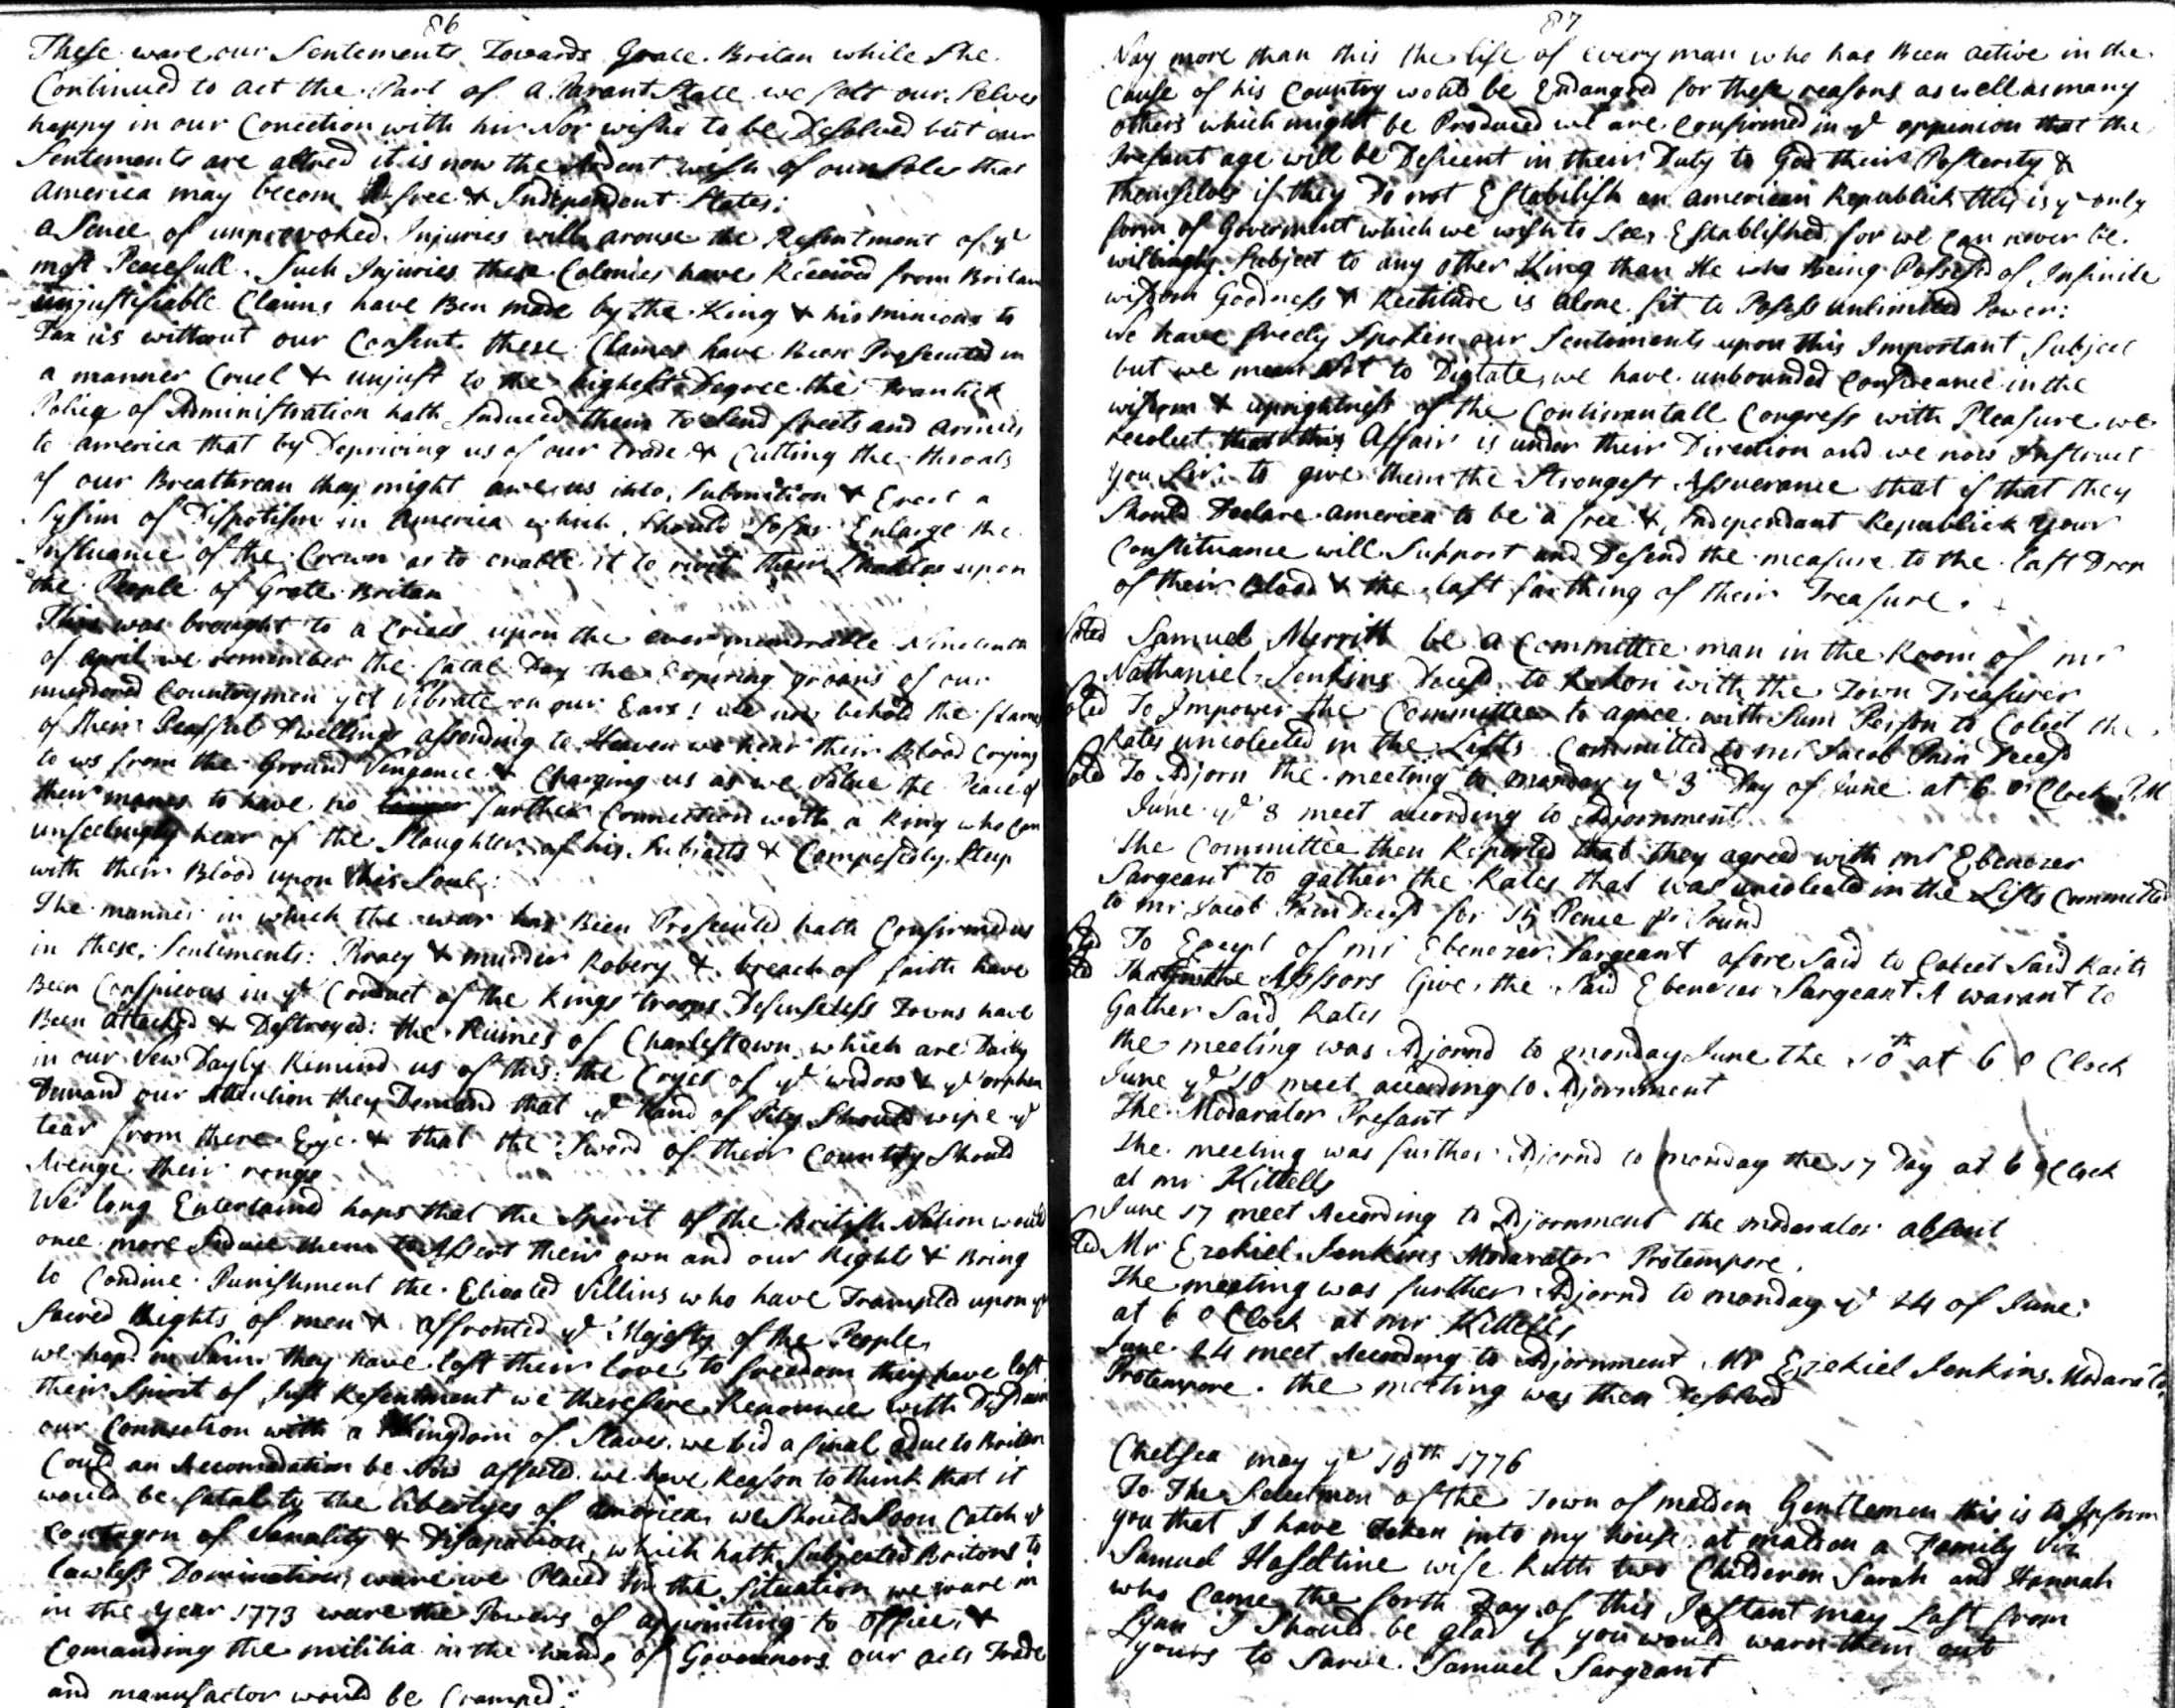 86
These ware our Sentements Towards Grate Britan while She
Continued to act the Part of a Parant State we felt our Selves
happy in our Conection with hir Nor wishd to be Desolved but our
Sentements are altred it is now the Ardent wish of our Soles that
America may becom free & Independent States:
a Sence of unprovoked Injuries will arouse the Resentment of ye
most Peacefull Such Injuries these Colonies have Received from Britan
unjustifiable Claims have Ben made by the King & his minions to
Tax us without our Consent these Claimes have been Prosecuted in
a manner Cruel & unjust to the highest Degree the Frantick
Policy of Administration hath Induced them to Send fleets and Armies
to America that by Depriving us of our trade & Cutting the throats
of our Breathrean they might awe us into Submition & Erect a
System of Dispotism in America which Should So far Enlarge the
Influance of the Crown as to enable it to rivit their Shakles upon
the People of Grate Britan
This was brought to a Crises upon the ever memorable Nineteenth
of April we remember the fatal Day the Expiring groans of our
murdered Countrymen yet Vibrate on our Ears! we now behold the flames
of their Peasful Dwellings assending to Heaven we hear their Blood Crying
to us from the Ground Vengance & Charging us as we Value the Peace of
their manes to have no further Connection with a King who Can
unfeelingly hear of the Slaughter of his Subiects & Composedly Sleep
with their Blood upon his Soul:
The manner in which the war has Been Prosecuted hath Confirmed us
in these Sentements: Piracy & murder Robery & breach of faith have
Been Conspicous in ye Conduct of the Kings troops Defenseless Towns have
Been attacked & Destroyed: the Ruines of Charlestown which are Daily
in our Vew Dayly Remind us of this: the Cryes of ye widow & ye orphen
Demand our Attention they Demand that ye Hand of Pity Should wipe ye
tear from there Eye & that the Sword of their Country Should
Avenge their rongs
We long Entertained hops that the Sperit of the British Nation would
once more Induce them to Assert their own and our Rights & Bring
to Condine Punishment the Elivated Villins who have Trampled upon ye
Sacred Rights of men & affronted ye Majesty of the People
we hopd in Vain they have lost their love to freedom they have lost
their Spirit of Just Resentment we therefore Renounce with Disdain
our Connection with a Kingdom of Slaves we bid a final adue to Britan
Could an Accomodation be Now affected we have Reason to think that it
would be fatal to the libertyes of America we Should Soon Catch ye
contagon of Venality & Disapation which hath Subjected Britons to
lawless Domination ware we Placed in the Situation we ware in
in the year 1773 ware the Powers of appointing to Office &
Comanding the militia in the hands of Governors our arts Trade
and manufactor would be Cramped:
87
Nay more than this the life of every man who has Been active in the
cause of his Country would be Endangred for these reasons as well as many
others which might be Produced we are Confirmed in ye oppinion that the
Presant age will be Deficent in their Duty to God their Posterity &
themselves if they Do not Establish an American Republick this is ye only
form of Goverment which we wish to See Established for we Can never be
willingly Subject to any other King than He who Being Possesd of Infinite
wisdom Goodness & Rectitude is alone fit to Posess unlimited Power:
we have freely Spoken our Sentements upon this Important Subject
but we mean Not to Dictate we have unbounded Confideance in the
wisdom & uprightness of the Continantall Congress with Pleasure we
recolect that this Affair is under their Direction and we now Instruct
you Sir to give them the Strongest Assuerance that if that they
Should Declare America to be a free & Independant Republick your
Constituance will Support and Defend the measure to the last Drop
of their Blood & the last farthing of their Treasure.
Voted Samuel Merritt be a Committee man in the Room of mr
Nathaniel Jenkins Decesd to Rekon with the Town Treasurer
Voted To Impower the Committee to agree with Sum Person to Colect the
Rates uncolected in the Lists Committed to mr Jacob Pain Decesd
Voted To Adjorn the meeting to monday ye 3 Day of June at 6 o Clock P.M
June ye 3 meet according to Adjornment
the Committee then Reported that they agreed with mr Ebenezer
Sargeant to gather the Rates that was uncolected in the Lists Committed
to mr Jacob Pain Decesd for 15 Pence pr Pound
To Except of mr Ebenezer Sargeant afore Said to Colect Said Raits
That the Assors Give the Said Ebenezer Sargeant A warant to
Gather Said Rates
the meeting was Adjornd to monday June the 10th at 6 o Clock
June ye 10 meet according to Adjornment
The Modarator Presant
the meeting was further Adjornd to monday the 17 Day at 6 oClock
at mr Kittells
June 17 meet According to Adjornment the moderator absent
Mr Ezekiel Jenkins Modarator Protempore.
The meeting was further Adjornd to monday ye 24 of June:
at 6 o Clock at mr Kittells
June 24 meet According to Adjornment Mr Ezekiel Jenkins Modarator
Protempore. the meeting was then Desolved
Chelsea may ye 15th 1776
To The Selectmen of the Town of malden Gentlemen this is to Inform
you that I have Taken into my house at maldon a Family Viz
Samuel Haseltine wife Ruth two Childeren Sarah and Hannah
who Came the forth Day of this Instant may Last from
Lynn I Should be glad if you would warn them out
yours to Sarve Samuel Sargeant